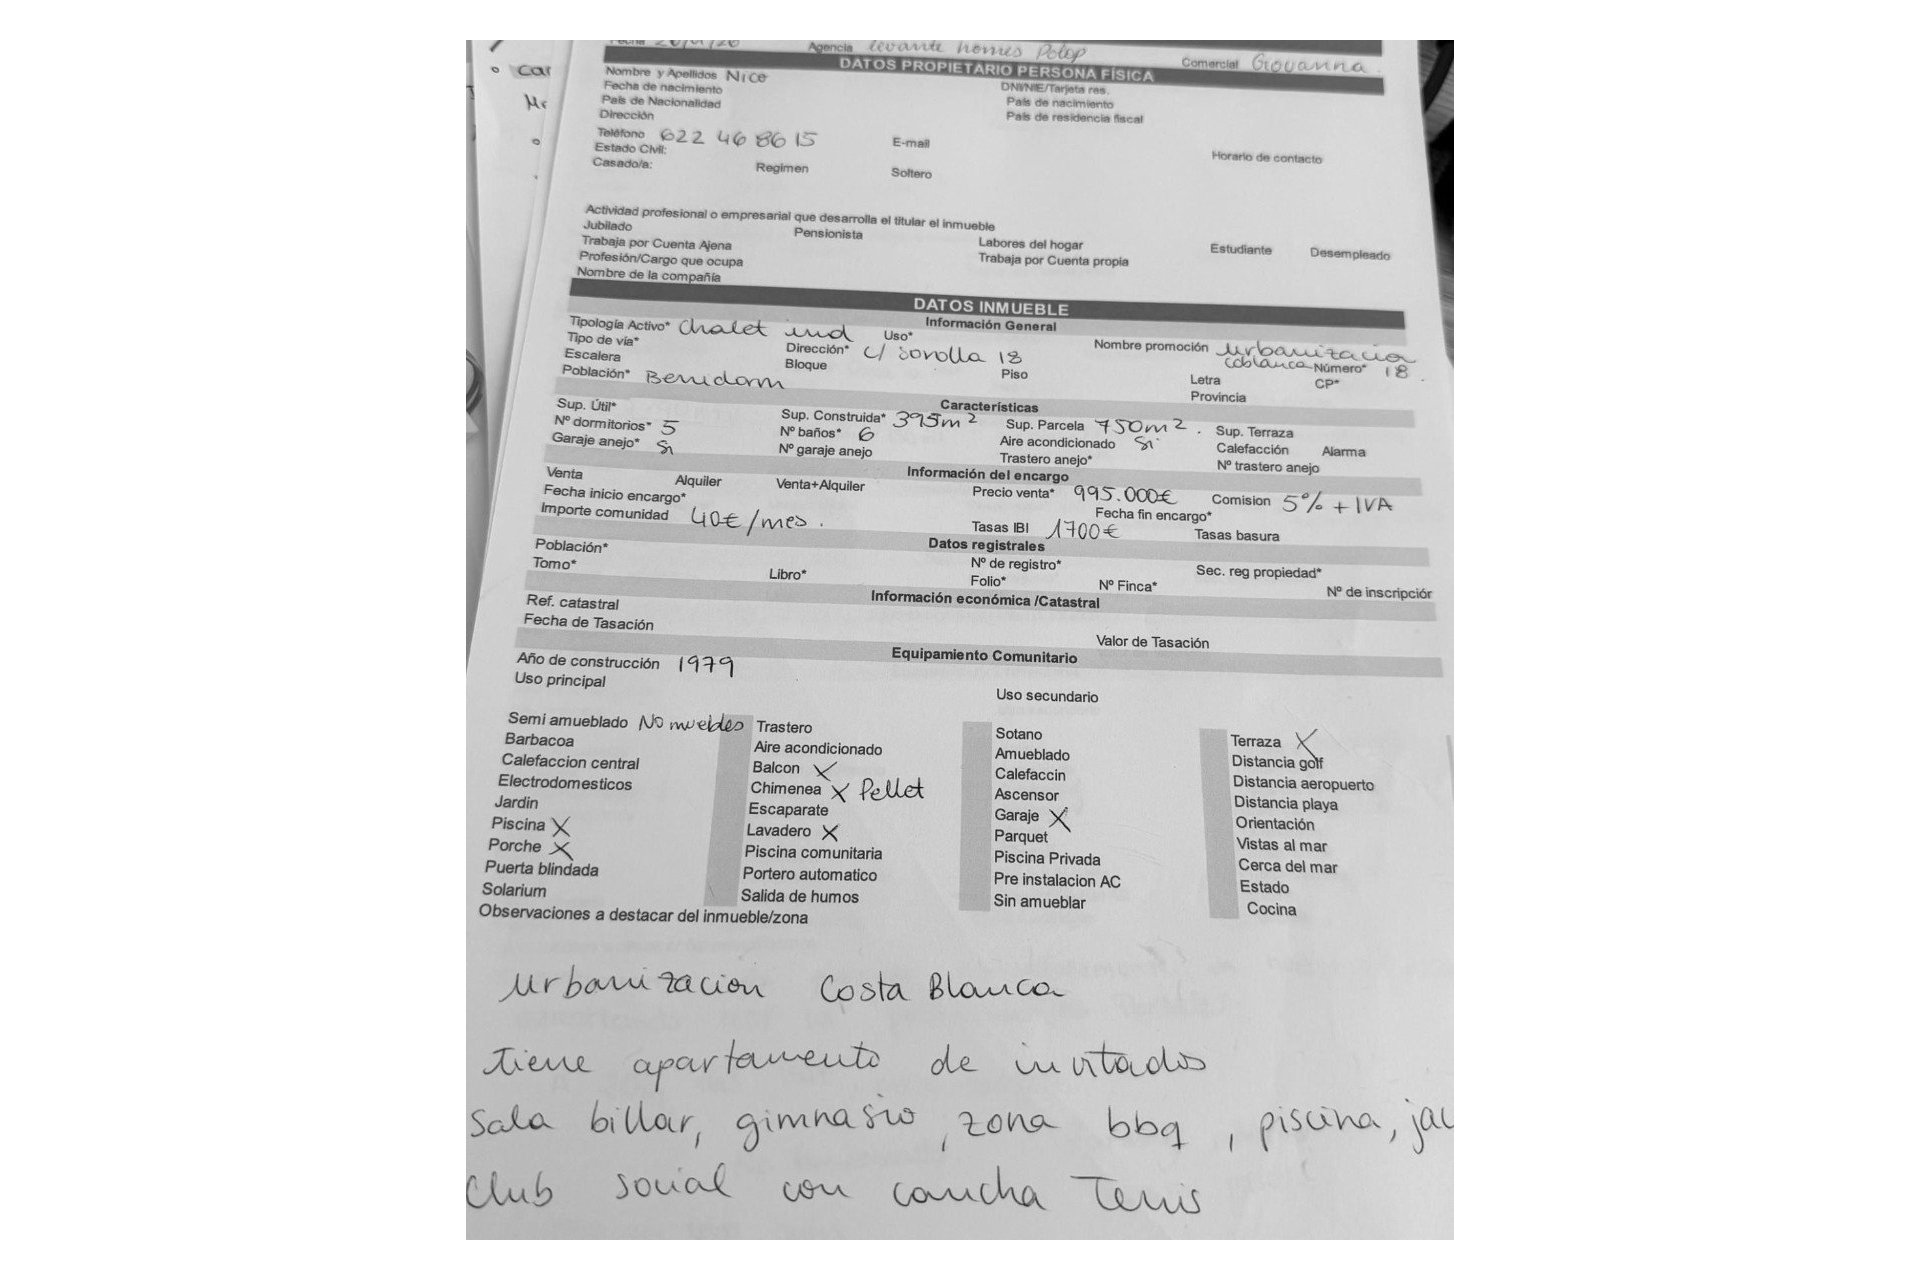 Fecha Agencia Levante homes Polop Comercial Giovanna
DATOS PROPIETARIO PERSONA FÍSICA
Nombre y Apellidos Nico DNI/NIE/Tarjeta res.
Fecha de nacimiento País de nacimiento
País de Nacionalidad País de residencia fiscal
Dirección
Teléfono 622 46 86 15 E-mail Horario de contacto
Estado Civil:
Casado/a: Regimen Soltero
Actividad profesional o empresarial que desarrolla el titular el inmueble
Jubilado Pensionista Labores del hogar Estudiante Desempleado
Trabaja por Cuenta Ajena Trabaja por Cuenta propia
Profesión/Cargo que ocupa
Nombre de la compañía
DATOS INMUEBLE
Información General
Tipología Activo* Chalet ind Uso* Nombre promoción urbanizacion coblanca
Tipo de vía* Dirección* c/ sorolla 18 Número* 18
Escalera Bloque Piso Letra CP*
Población* Benidorm Provincia
Características
Sup. Útil* Sup. Construida* 395m² Sup. Parcela 750m². Sup. Terraza
Nº dormitorios* 5 Nº baños* 6 Aire acondicionado Si Calefacción Alarma
Garaje anejo* Si Nº garaje anejo Trastero anejo* Nº trastero anejo
Información del encargo
Venta Alquiler Venta+Alquiler Precio venta* 995.000€ Comision 5% + IVA
Fecha inicio encargo* Fecha fin encargo*
Importe comunidad 40€/mes. Tasas IBI 1700€ Tasas basura
Datos registrales
Población* Nº de registro* Sec. reg propiedad*
Tomo* Libro* Folio* Nº Finca* Nº de inscripciór
Información económica /Catastral
Ref. catastral
Fecha de Tasación Valor de Tasación
Equipamiento Comunitario
Año de construcción 1979
Uso principal Uso secundario
Semi amueblado No muebles Trastero Sotano Terraza X
Barbacoa Aire acondicionado Amueblado Distancia golf
Calefaccion central Balcon X Calefaccin Distancia aeropuerto
Electrodomesticos Chimenea X Pellet Ascensor Distancia playa
Jardin Escaparate Garaje X Orientación
Piscina X Lavadero X Parquet Vistas al mar
Porche X Piscina comunitaria Piscina Privada Cerca del mar
Puerta blindada Portero automatico Pre instalacion AC Estado
Solarium Salida de humos Sin amueblar Cocina
Observaciones a destacar del inmueble/zona
Urbanizacion Costa Blanca
tiene apartamento de invitados
Sala billar, gimnasio, zona bbq, piscina,
Club social con cancha Tenis